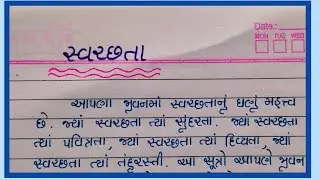 Date:
MON TUE WED
સ્વચ્છતા
આપણા જીવનમાં સ્વચ્છતાનું ઘણું મહત્ત્વ
છે. જ્યાં સ્વચ્છતા ત્યાં સુંદરતા. જ્યાં સ્વચ્છતા
ત્યાં પવિત્રતા, જ્યાં સ્વચ્છતા ત્યાં દિવ્યતા, જ્યાં
સ્વચ્છતા ત્યાં તંદુરસ્તી. આ સૂત્રો આપણે જીવન